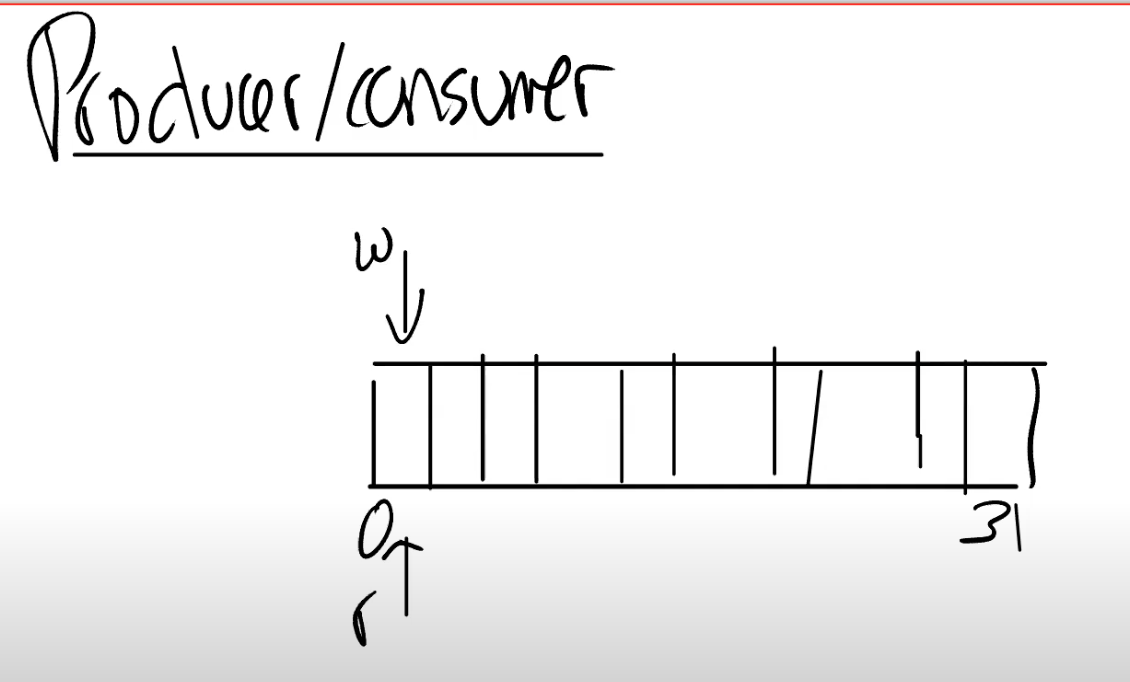 Producer/consumer
w
0
31
r